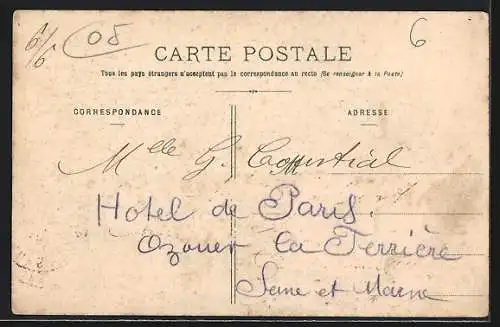 6/6 08
6
CARTE POSTALE
Tous les pays étrangers n'acceptent pas la correspondance au recto (Se renseigner à la Poste)
CORRESPONDANCE
ADRESSE
Mlle G.
Hotel de Paris
Ozouer la Ferrière
Seine et Marne